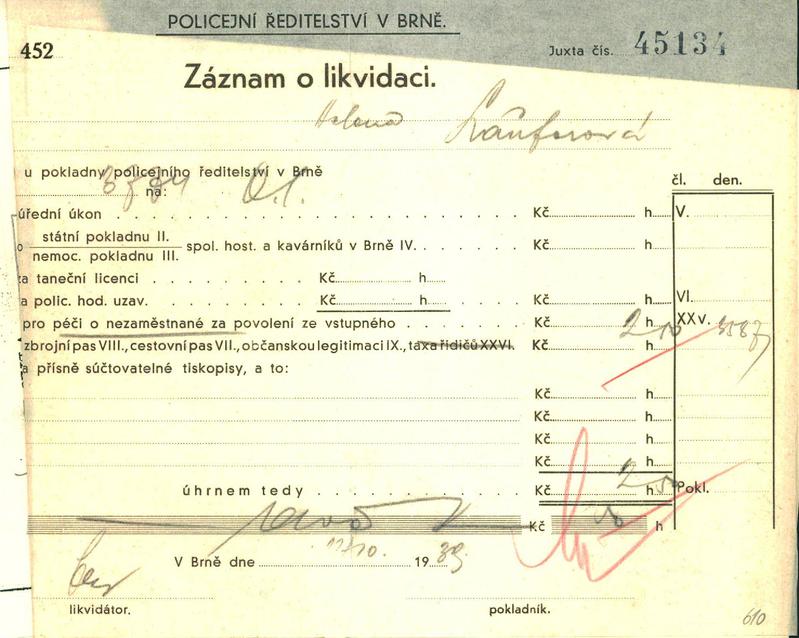 POLICEJNÍ ŘEDITELSTVÍ V BRNĚ.
452
Juxta čís. 45134
Záznam o likvidaci.
Helena
u pokladny policejního ředitelství v Brně
na:
čl. den.
úřední úkon Kč h V.
státní pokladnu II.
nemoc. pokladnu III.
spol. host. a kavárníků v Brně IV. Kč h
za taneční licenci Kč h
a polic. hod. uzav. Kč h Kč h VI.
pro péči o nezaměstnané za povolení ze vstupného Kč h XXV.
zbrojní pas VIII., cestovní pas VII., občanskou legitimaci IX., taxa řidičů XXVI. Kč h
a přísně súčtovatelné tiskopisy, a to:
Kč h
Kč h
Kč h
Kč h
úhrnem tedy Kč h Pokl.
Kč h
V Brně dne 19 39
likvidátor. pokladník.
610